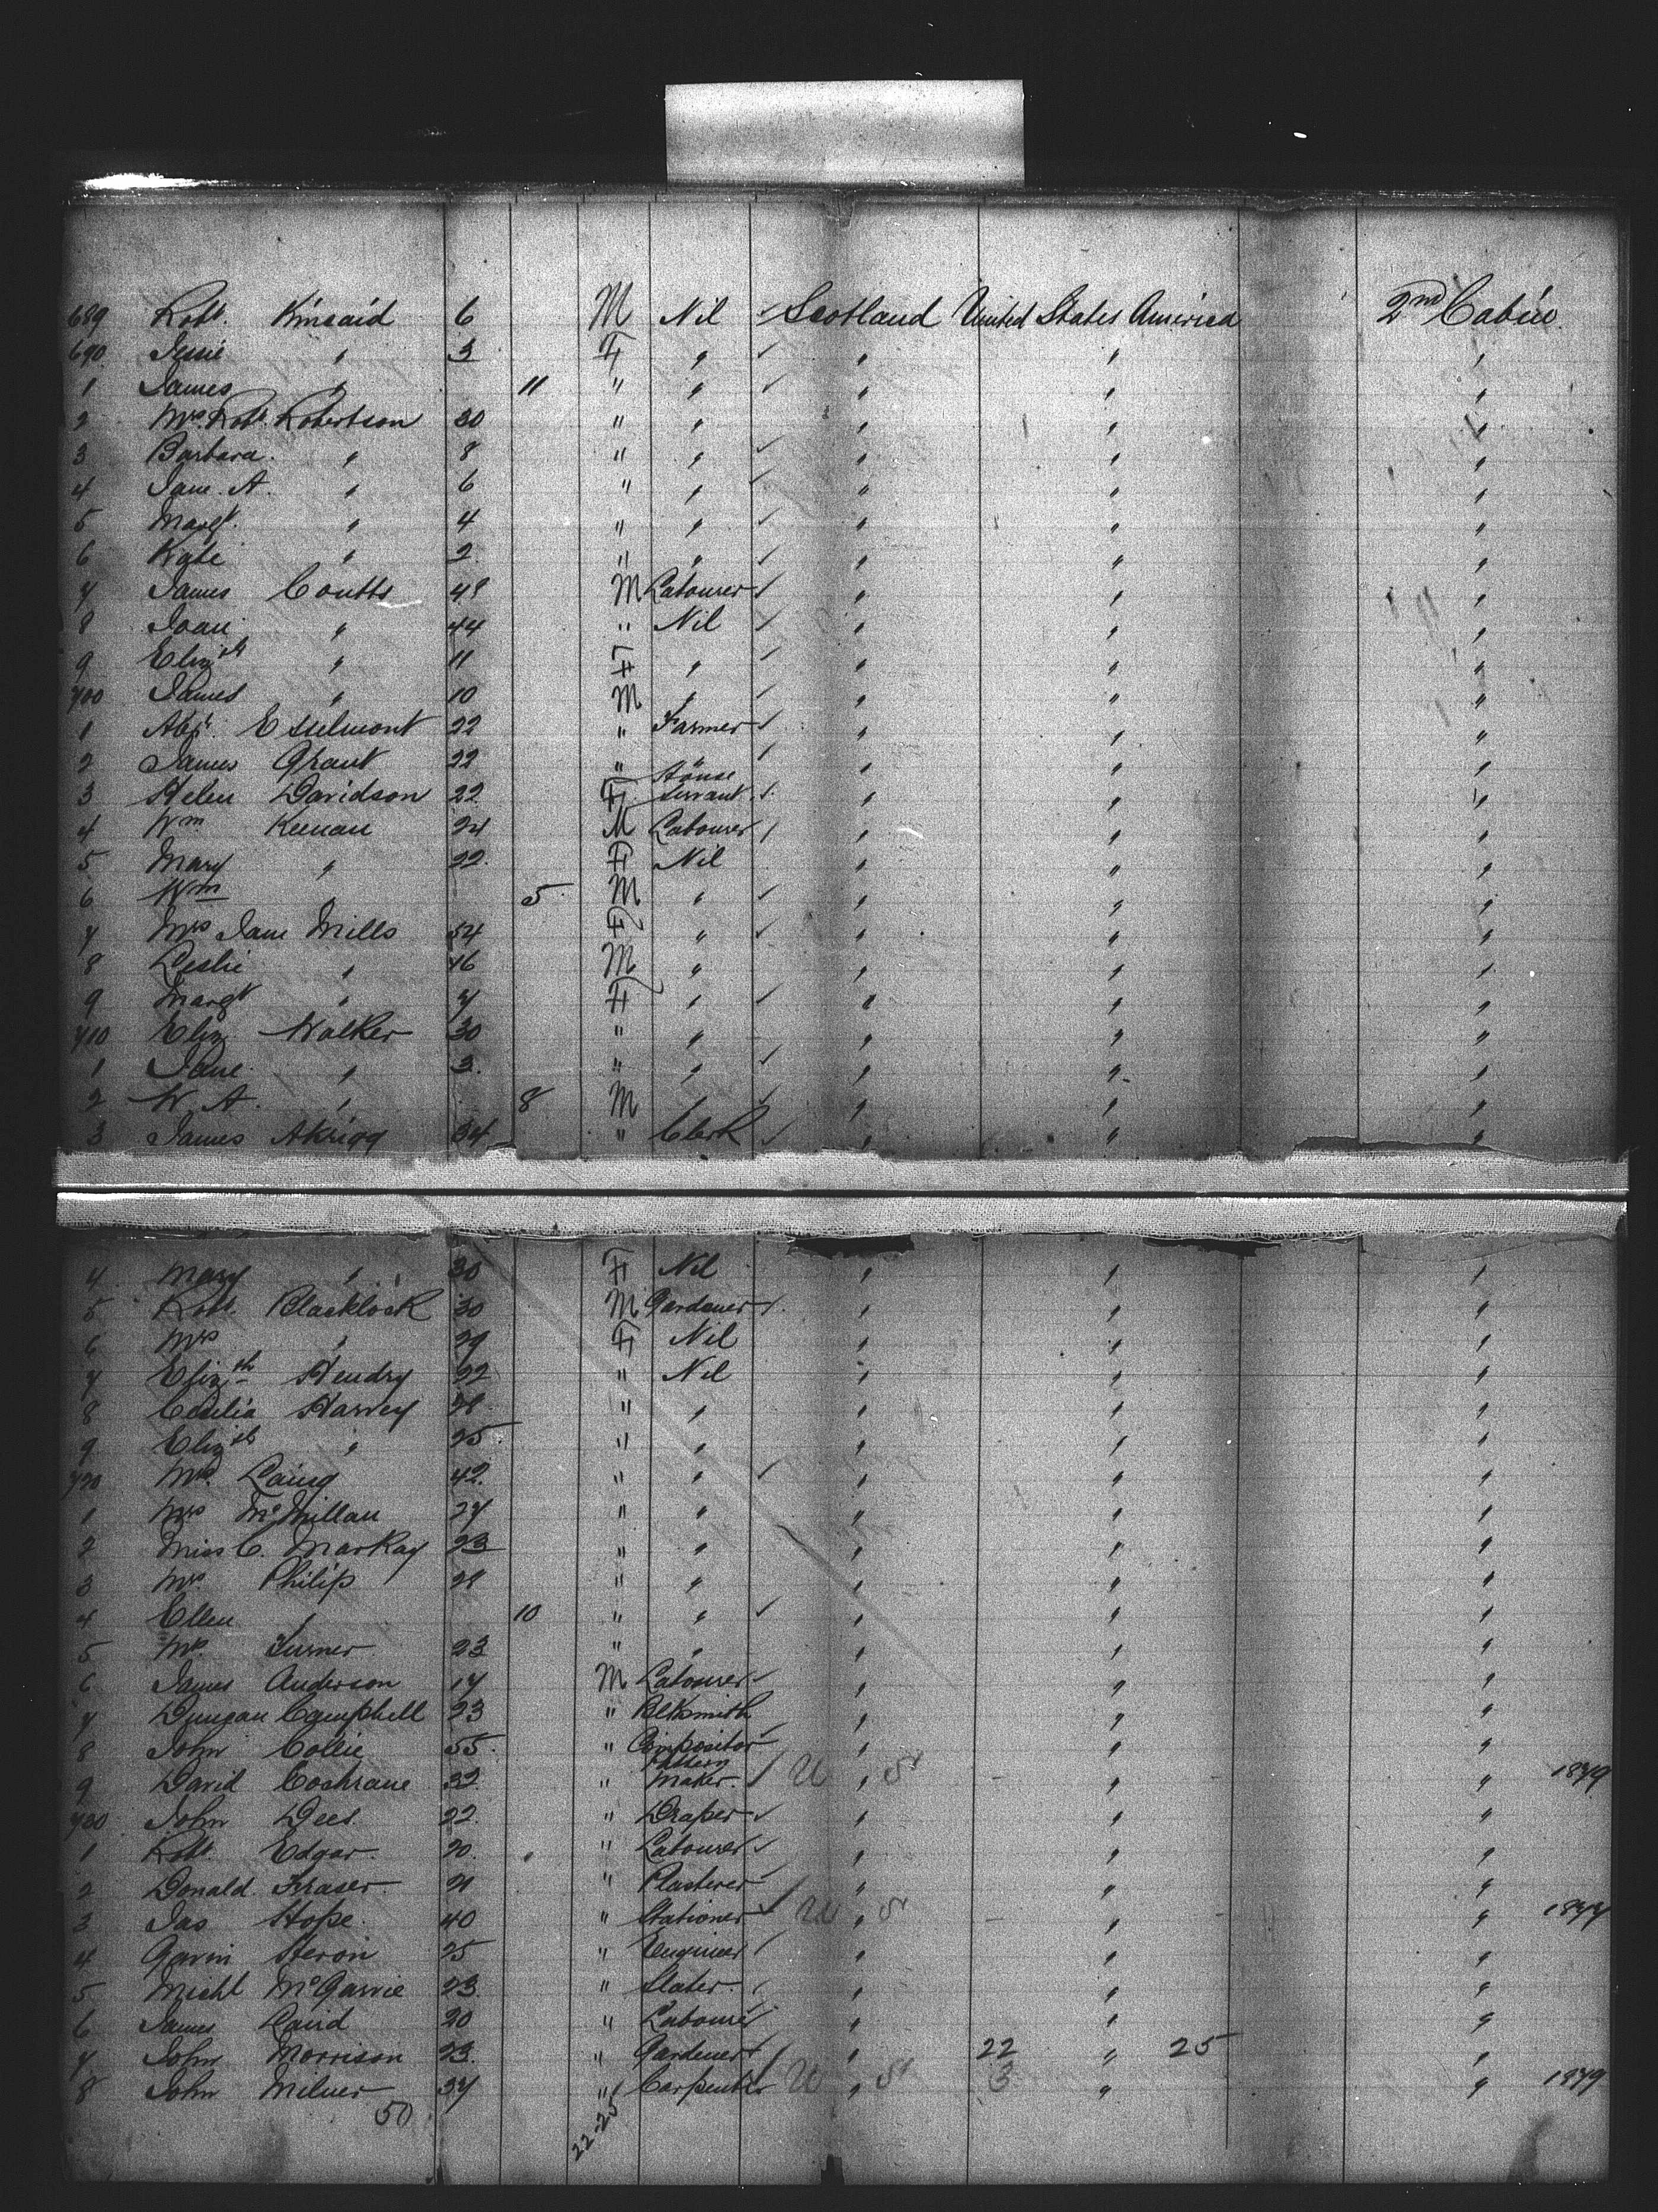 689 Robt. Kincaid 6 M Nil ✓ Scotland United States America 2nd Cabin
690 Jessie " 3 F " ✓ " " "
1 James " 11 " " ✓ " " "
2 Mrs Robt. Robertson 30 " " " " "
3 Barbara. " 8 " " ✓ " " "
4 Jane. A. " 6 " " ✓ " " "
5 Margt. " 4 " " ✓ " " "
6 Kate " 2 " " ✓ " " "
7 James Coutts 48 M Labourer ✓ " " "
8 Joan " 44 " Nil ✓ " " "
9 Elizth " 11 F " ✓ " " "
700 James " 10 M " ✓ " " "
1 Esselmont 22 " Farmer ✓ " " "
2 James Grant 22 " " ✓ " " "
3 Helen Davidson 22 F House servant ✓ " " "
4 Wm Keenan 24 M Labourer ✓ " " "
5 Mary " 22 F Nil " " "
6 Wm 5 M " ✓ " " "
7 Mrs Jane Mills 54 F " ✓ " " "
8 Leslie " 16 M " " " "
9 Margt " 7 F " ✓ " " "
710 Eliz Walker 30 " " " " "
1 Jane " 3 " " ✓ " " "
2 W. A. " 8 M " ✓ " " "
3 James Akrigg 34 " Clerk ✓ " " "
4 Mary " 30 F Nil " " "
5 Robt. Blacklock 30 M Gardener ✓ " " "
6 Mrs " 29 F Nil " " "
7 Elizth Hendry 22 " Nil " " "
8 Cecilia Harvey 28 " " " " "
9 Elizth " 25 " " " " "
720 Mrs. Laing 42 " " ✓ " " "
1 Mrs McMillan 27 " " " " "
2 Miss C. MacKay 23 " " " " "
3 Mrs Philip 28 " " " " "
4 Ellen " 10 " " ✓ " " "
5 Mrs. Turner 23 " " " " "
6 James Anderson 17 M Labourer ✓ " " "
7 Duncan Campbell 23 " Blksmith " " "
8 John Collie 55 " Compositor ✓ " " "
9 David Cochrane 32 " Pattern Maker. ✓ U " S - " " 1879
730 John Dees 22 " Draper ✓ " " "
1 Robt. Edgar 20 " Labourer ✓ " " "
2 Donald Fraser 21 " Plasterer ✓ " " "
3 Jas Hope 40 " Stationer ✓ U " S - " - " 1877
4 Gavin Heron 25 " Engineer ✓ " " "
5 Michl McGarvie 23 " Slater ✓ " " "
6 James Laird 20 " Labourer ✓ " " "
7 John Morrison 23 " Gardener ✓ " 22 " 25 "
8 John Milner 37 " Carpenter ✓ U " S 3 " " 1879
50 22-25